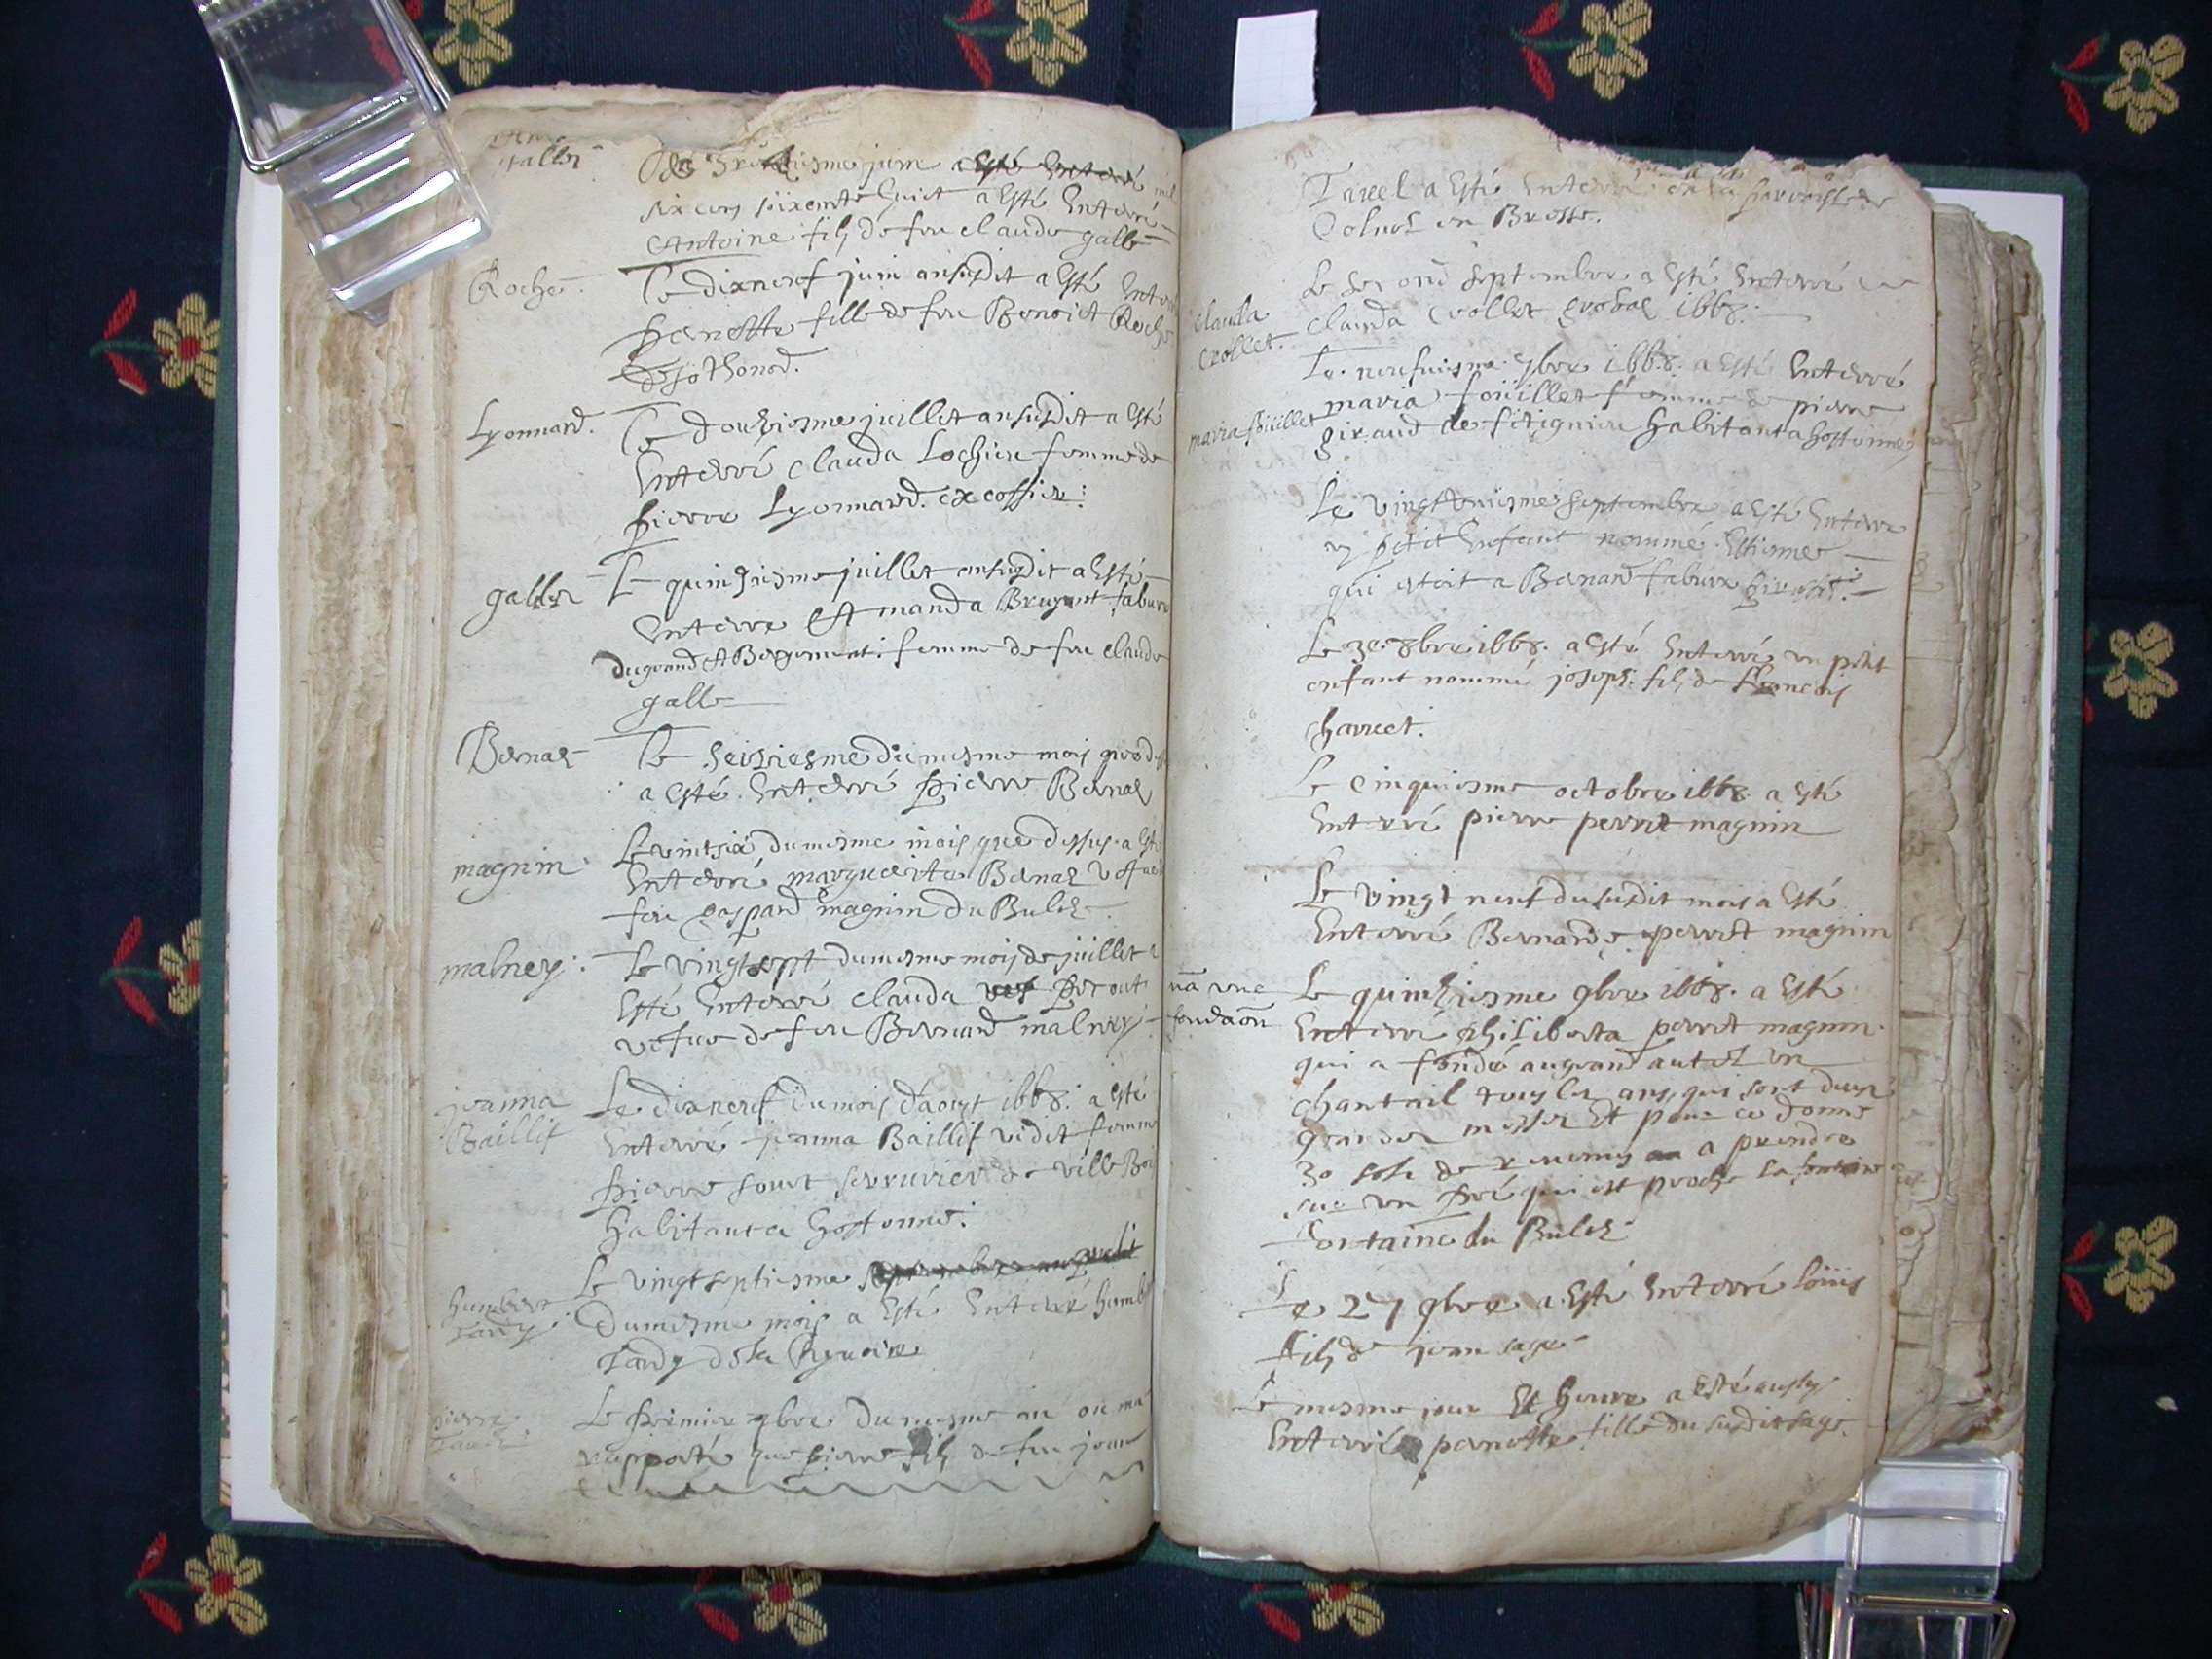 galler
juin a Esté Enterré mil
six cens soixente huict a Esté Enterré
Antoine filz de feu claude galle
Roche.
Le dixneuf juin ansusdit a Esté Enterré
pernette fille de feu Benoict Roche
de jothonod.
Lyonnard.
Le douziesme juillet ansusdit a Esté
Enterré clauda Lochieu femme de
pierre Lyonnard. excoffier:
galler
Le quinziesme juillet ansusdit a Esté
Enterre Amanda faburé
du grand Abergement: femme de feu claude
galle
Bernar
Le seiziesme du mesme mois que dess
a Esté. Enterré pierre Bernar
magnin.
Le vintsix du mesme mois que dessus. a Esté
Enterré marguerite Bernar vefue
feu gaspard magnin du Bulez.
malney:
Le vingtsept du mesme mois de juillet a
Esté Enterré clauda
vefue de feu Bernard malney
jeanna
Baillif
Le dixneuf du mois d'aougt 1668. a esté
Enterré jeanna Baillif vidit femme
pierre serrurier de ville Boi
habitant a hostonne.
humbert
Tardy
Le vingtseptiesme
Du mesme mois a Esté Enterré humb
Tardy de la
pierre
Le premier 7bre du mesme an on m'a
rapporté que pierre filz de feu jean
Tareel a Esté Enterré en la parroisse de
en Bresse.
clauda
Crollet.
Le second septembre a Esté Enterré
clauda Crollet 1668.
maria foüillet
Le neufuiesme 7bre 1668. a Esté Enterré
maria foüillet femme de pierre
giraud de fitignieu habitant a hostonne
Le septembre a Esté Enterre
petit Enfant nommé Estienne
qui estoit a Bernard fabure
Le 3e. 8bre 1668. a Esté Enterré un petit
enfant nommé joseph. filz de francois
charvet.
Le Cinquiesme octobre 1668 a Esté
Enterré pierre perret magnin
Le vingt neuf du susdit mois a Esté
Enterré Bernarde perret magnin
na une
fondaon
Le quinziesme 9bre 1668. a Esté
Enterré philiberta perret magnin.
qui a fondé au grand autel un
chantail tous les ans, qui sont deux
grandes messes Et pour ce donne
30 sols de revenus a prendre
sur un pré qui est proche la fontaine
fontaine du Bulez
Le 27 9bre a Esté Enterré loüis
filz de jean sage
Le mesme jour Et heure a Esté aussy
Enterré pernette fille du susdit sage.